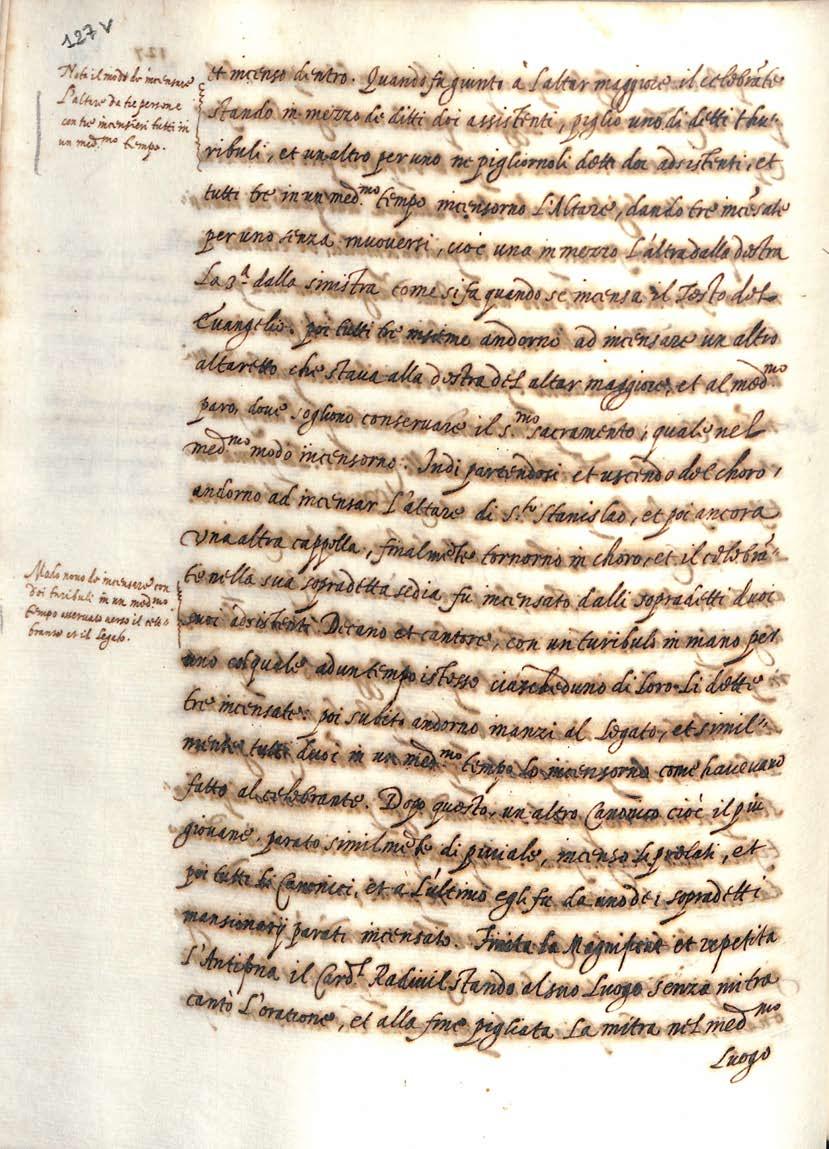 127 v
Nota il modo de incensare
l'altare da tre persone
con tre incensieri tutti in
un med.mo tempo.
et incenso dentro. Quando fu giunto à l'altar maggiore il celebrāte
stando in mezzo de ditti doi assistenti, piglio uno di detti thu-
ribuli, et un altro per uno ne pigliornoli detti doi adsistenti, et
tutti tre in un med.mo tempo incensorno l'Altare, dando tre incēsate
per uno senza muoversi, cioè una in mezzo l'altra dalla destra
la 3.a dalla sinistra come si fa quando se incensa il Testo del
Evangelio. poi tutti tre insieme andorno ad incensare un altro
altaretto che stava alla destra del altar maggiore, et al med.mo
paro, dove sogliono conservare il s.mo sacramento, quale nel
med.mo modo incensorno. Indi partendosi et uscendo del choro,
andorno ad incensar l'altare di s.to Stanislao, et poi ancora
una altra cappella, finalmēte tornorno in choro, et il celebrā-
te nella sua sopradetta sedia fu incensato dalli sopradetti duoi
Modo novo de incensare con
doi turibuli in un med.mo
tempo osservato verso il cele-
brante et il legato.
suoi adsistenti Decano et cantore, con un turibulo in mano per
uno col quale ad un tempo istesso ciascheduno di loro li dette
tre incensate: poi subito andorno inanzi al Legato, et simil-
mente tutti duoi in un med.mo tempo lo incensorno come havevano
fatto al celebrante. Dopo questo, un altro Canonico cioè il più
giovane parato similmēte di piviale, incenso li prelati, et
poi tutti li Canonici, et à l'ultimo egli fu da uno dei sopradetti
mansionarij parati incensato. Finita la Magnificat et repetita
l'Antifona il Card.l Radivil stando al suo luogo senza mitra
cantò l'oratione, et alla fine pigliata la mitra nel med.mo
luogo